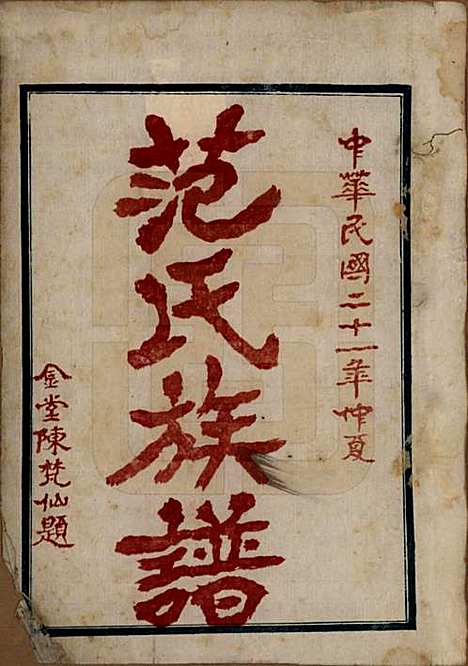 中華民國二十一年仲夏
范氏族譜
金堂陳梵仙題